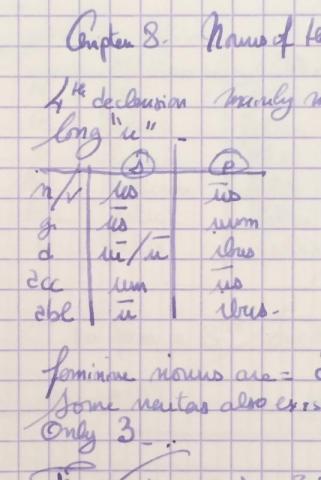 Chapter 8. Nouns of the
4th declension mainly m
long "u"
s p
n/v us ūs
g ūs uum
d uī/ū ibus
acc um ūs
abl ū ibus.
feminine nouns are =
Some neuters also exis
Only 3